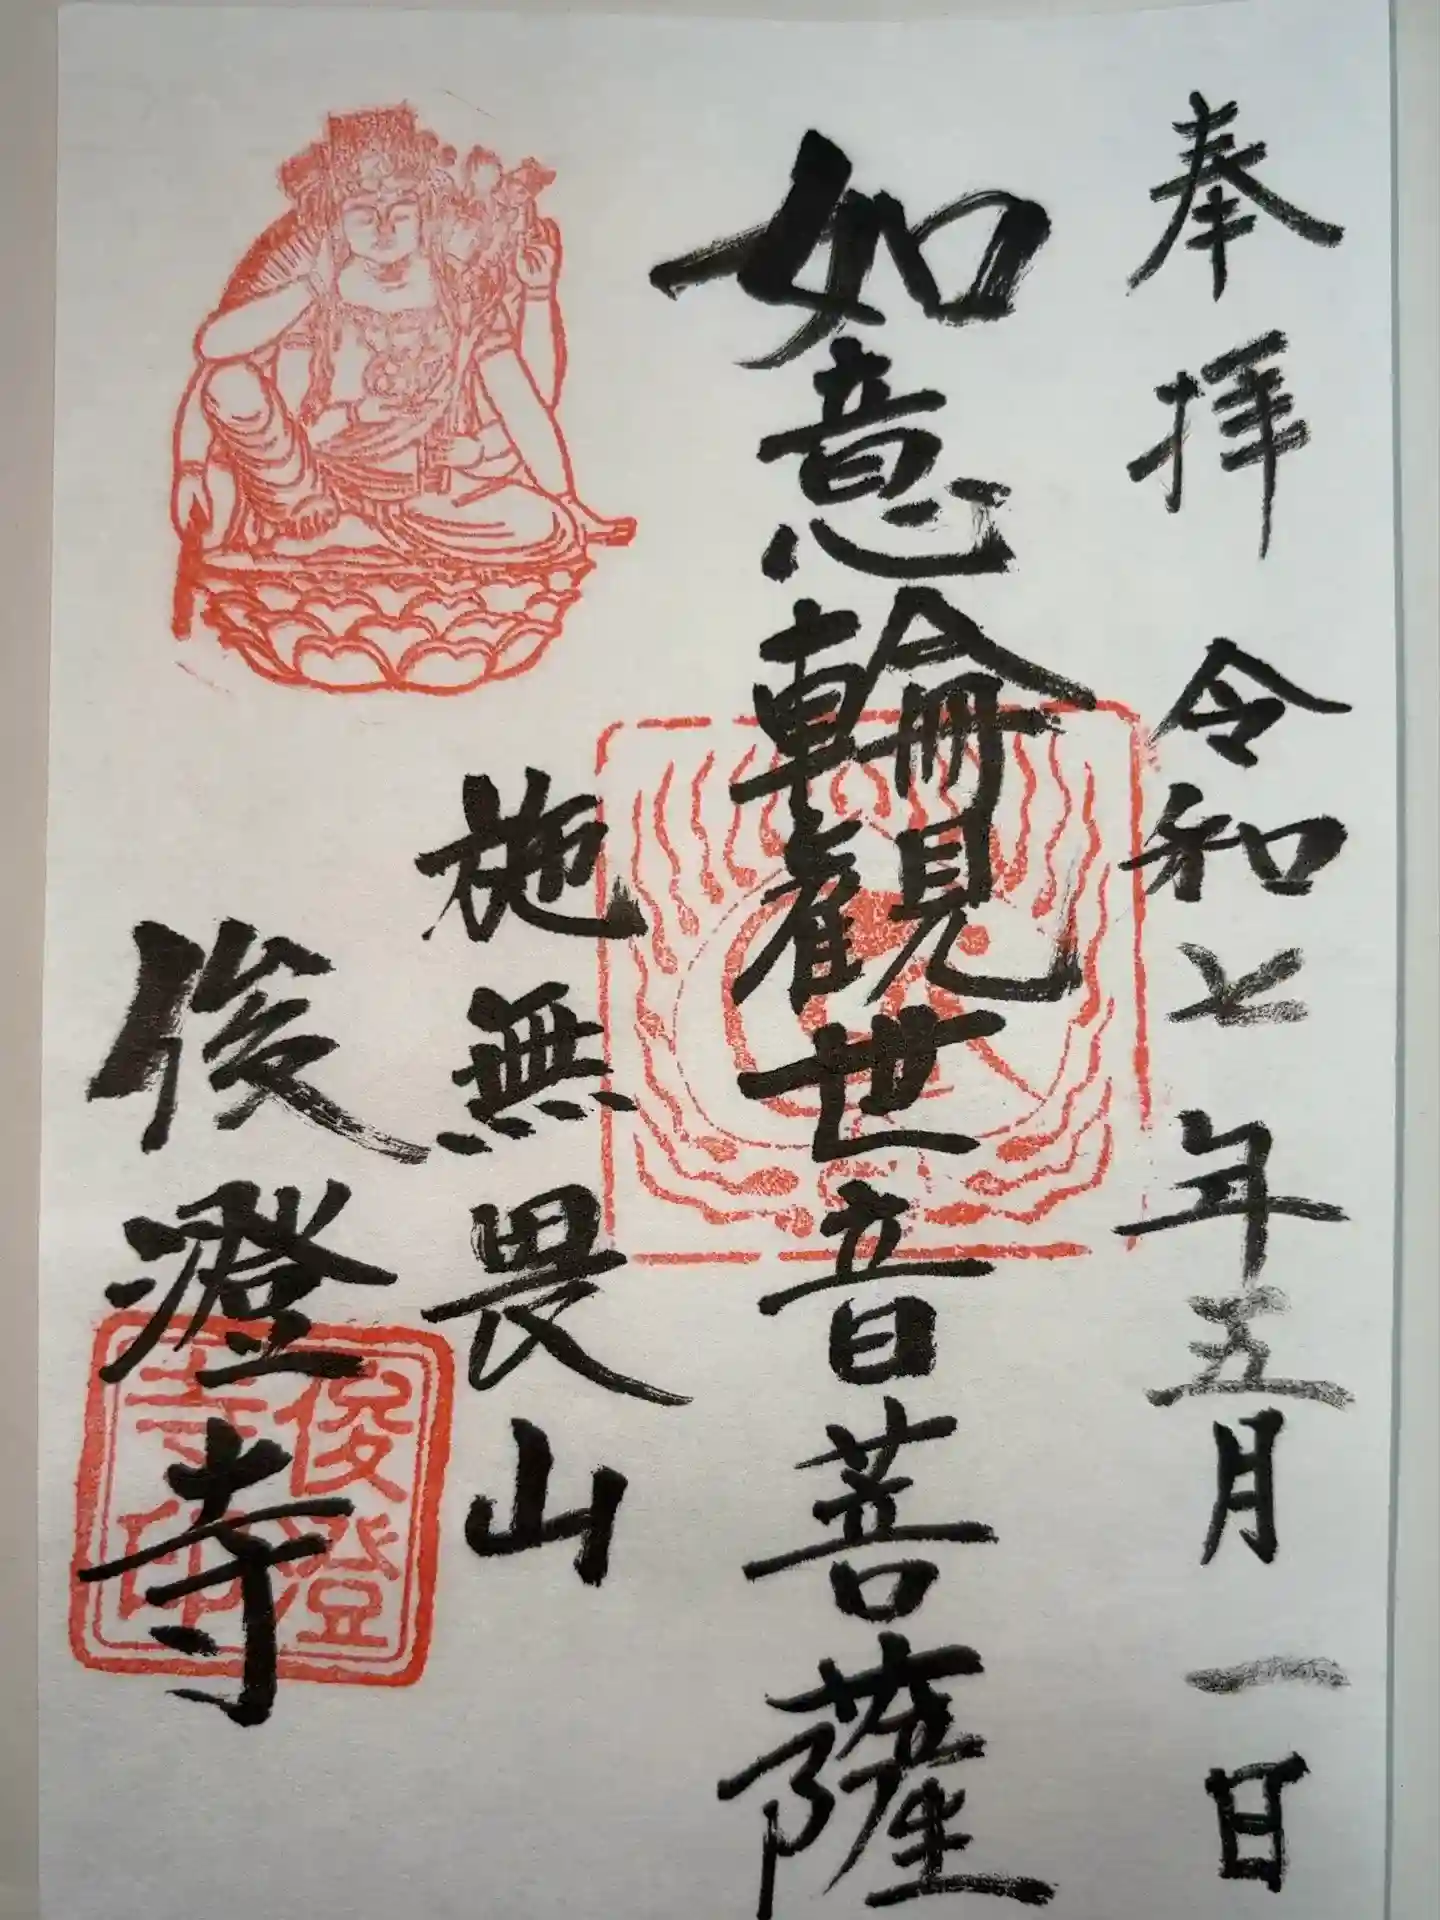 奉拝 令和七年五月一日
如意輪観世音菩薩
施無畏山
俊澄寺
俊澄寺印